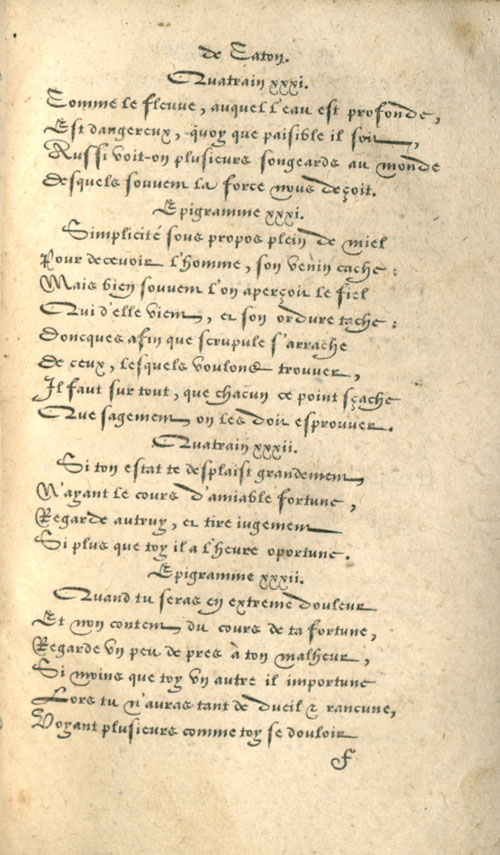 de Caton.
Quatrain xxxi.
Comme le fleuve, auquel l'eau est profonde,
Est dangereux, quoy que paisible il soit,
Aussi voit-on plusieurs songeards au monde
Desquels souvent la force nous deçoit.
Epigramme xxxi.
Simplicité sous propos plein de miel
Pour decevoir l'homme, son venin cache:
Mais bien souvent l'on aperçoit le fiel
Qui d'elle vient, et son ordure tache:
Doncques afin que scrupule s'arrache
De ceux, lesquels voulons trouver,
Il faut sur tout, que chacun ce point sçache
Que sagement on les doit esprouver.
Quatrain xxxii.
Si ton estat te desplaist grandement,
N'ayant le cours d'amiable fortune,
Regarde autruy, et tire iugement
Si plus que toy il a l'heure oportune.
Epigramme xxxii.
Quand tu seras en extreme douleur
Et non content du cours de ta fortune,
Regarde vn peu de pres à ton malheur,
Si moins que toy vn autre il importune
Lors tu n'auras tant de dueil & rancune,
Voyant plusieurs comme toy se douloir
f